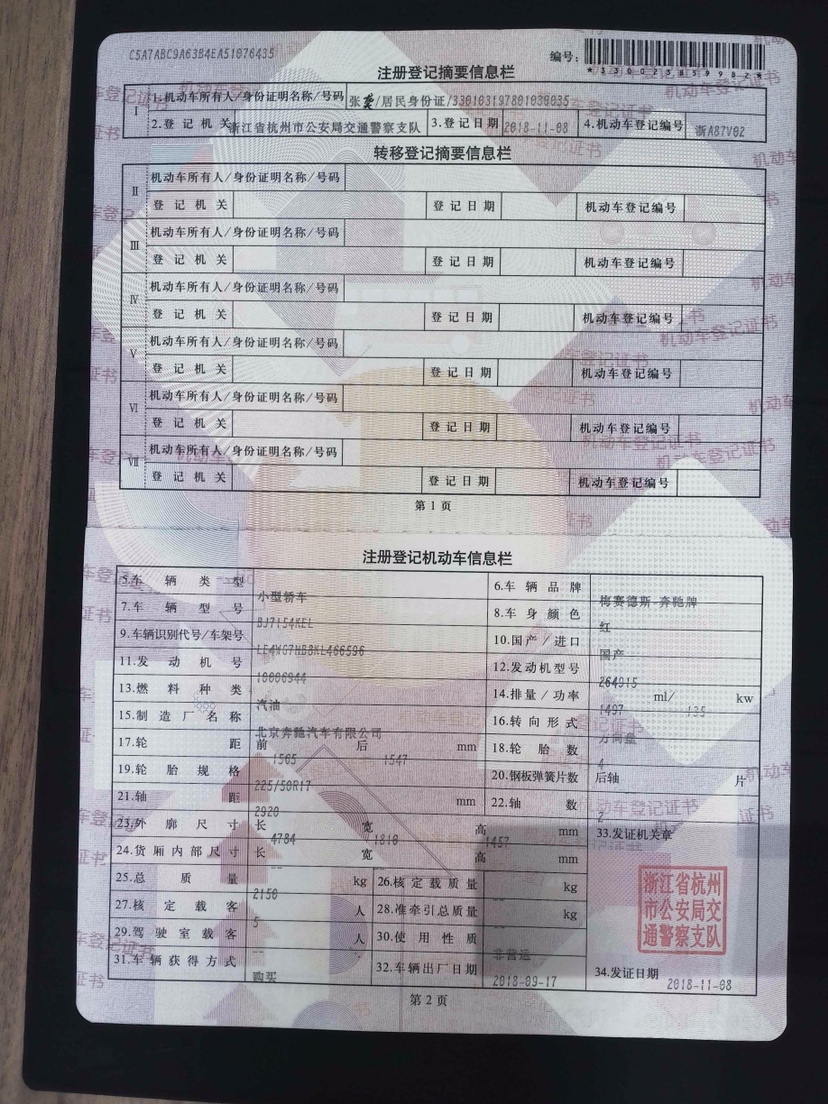 C5A7ABC9A63B4EA51076435
编号:
*330023859982*
注册登记摘要信息栏
I
1.机动车所有人/身份证明名称/号码 张 /居民身份证/330103197801030035
2.登记机关 浙江省杭州市公安局交通警察支队 3.登记日期 2018-11-08 4.机动车登记编号 浙A87V02
转移登记摘要信息栏
II
机动车所有人/身份证明名称/号码
登记机关 登记日期 机动车登记编号
III
机动车所有人/身份证明名称/号码
登记机关 登记日期 机动车登记编号
IV
机动车所有人/身份证明名称/号码
登记机关 登记日期 机动车登记编号
V
机动车所有人/身份证明名称/号码
登记机关 登记日期 机动车登记编号
VI
机动车所有人/身份证明名称/号码
登记机关 登记日期 机动车登记编号
VII
机动车所有人/身份证明名称/号码
登记机关 登记日期 机动车登记编号
第1页
注册登记机动车信息栏
5.车辆类型 小型轿车 6.车辆品牌 梅赛德斯-奔驰牌
7.车辆型号 BJ7154KEL 8.车身颜色 红
9.车辆识别代号/车架号 LE4WG7HB8KL466596 10.国产/进口 国产
11.发动机号 18006944 12.发动机型号 264915
13.燃料种类 汽油 14.排量/功率 1497 ml/ 135 kw
15.制造厂名称 北京奔驰汽车有限公司 16.转向形式 方向盘
17.轮距 前 1565 后 1547 mm 18.轮胎数 4
19.轮胎规格 225/50R17 20.钢板弹簧片数 后轴 片
21.轴距 2920 mm 22.轴数 2
23.外廓尺寸 长 4784 宽 1810 高 1457 mm 33.发证机关章
24.货厢内部尺寸 长 -- 宽 高 mm
25.总质量 2150 kg 26.核定载质量 -- kg
27.核定载客 5 人 28.准牵引总质量 -- kg
29.驾驶室载客 -- 人 30.使用性质 非营运
31.车辆获得方式 购买 32.车辆出厂日期 2018-09-17 34.发证日期 2018-11-08
浙江省杭州
市公安局交
通警察支队
第2页
机动车登记证书